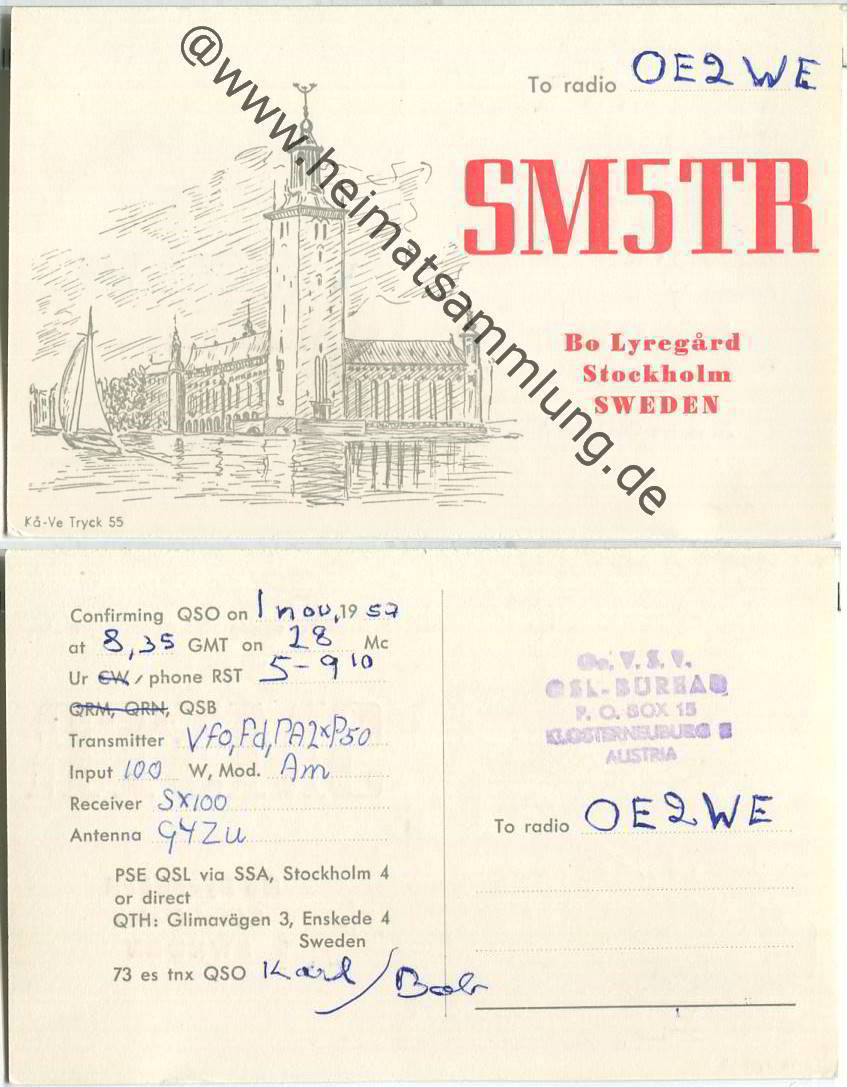 @www.heimatsammlung.de
To radio OE2WE
SM5TR
Bo Lyregård
Stockholm
SWEDEN
Kå-Ve Tryck 55
Confirming QSO on 1 nov, 1957
at 8,35 GMT on 28 Mc
Ur CW / phone RST 5-9 10
QRM, QRN, QSB
Transmitter Vfo, Fd, PA2xP50
Input 100 W, Mod. Am
Receiver SX100
Antenna G4ZU
PSE QSL via SSA, Stockholm 4
or direct
QTH: Glimavägen 3, Enskede 4
Sweden
73 es tnx QSO Karl / Bob
Oe. V. S. V.
QSL-BUREAU
P. O. BOX 15
KLOSTERNEUBURG 2
AUSTRIA
To radio OE2WE